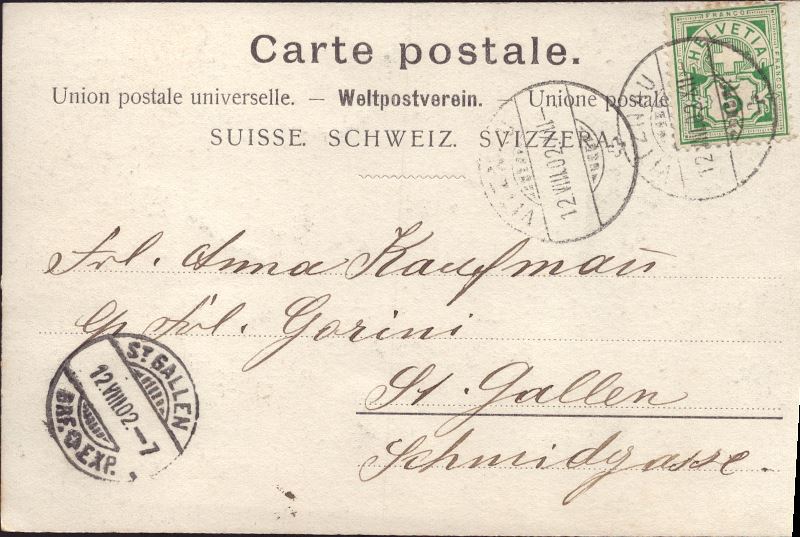 Carte postale.
Union postale universelle. — Weltpostverein. — Unione postale
SUISSE. SCHWEIZ. SVIZZERA.
FRANCO
HELVETIA
12.VIII.02.
Frl. Anna Kaufmann
Frl. Gorini
St. Gallen
Schmidgasse.
ST. GALLEN
12.VIII.02.–7
BRF. EXP.